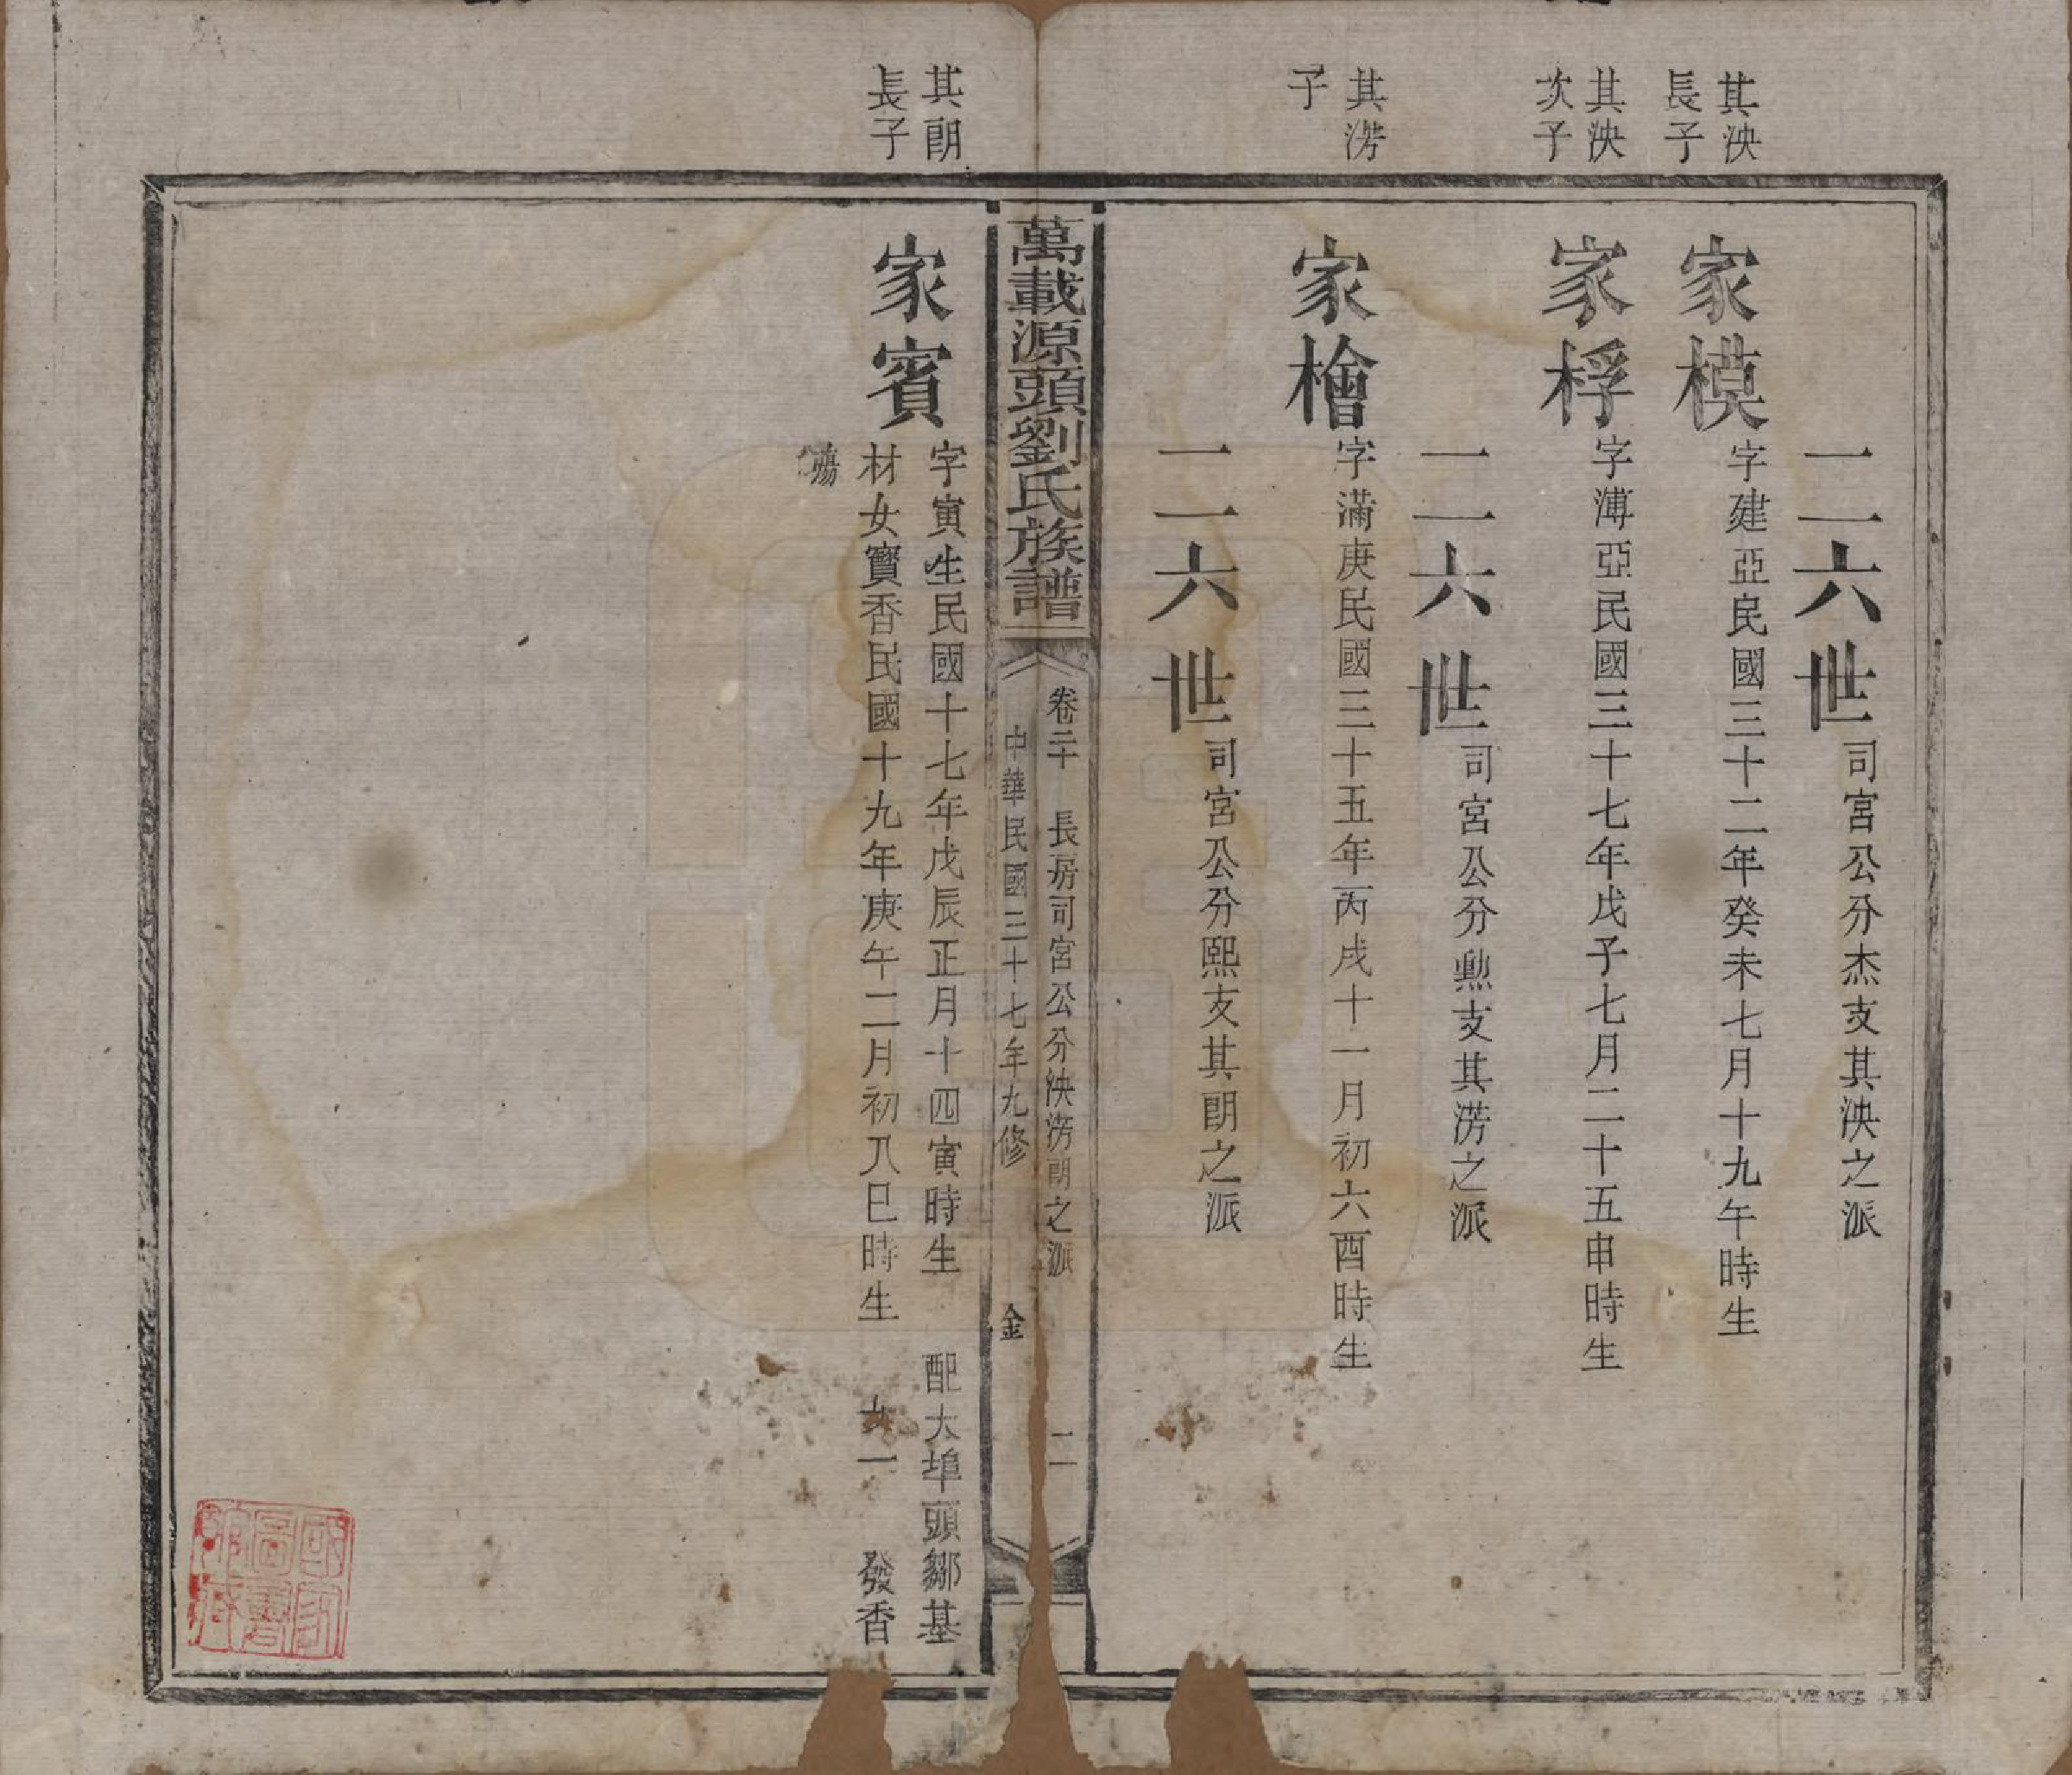 二六世司宮公分杰支其泱之派
其泱
長子
家模字建亞民國三十二年癸未七月十九午時生
其泱
次子
家桴字溥亞民國三十七年戊子七月二十五申時生
二六世司宮公分勲支其滂之派
其滂
子
家檜字滿庚民國三十五年丙戌十一月初六酉時生
二六世司宮公分熙支其朗之派
萬載源頭劉氏族譜
卷二十 長房司宮公分泱滂朗之派 二
中華民國三十七年九修 金
其朗
長子
家賓字寅生民國十七年戊辰正月十四寅時生 配大埠頭鄒基
材女寶香民國十九年庚午二月初八巳時生 女一 發香
殤
國家
圖書
館藏